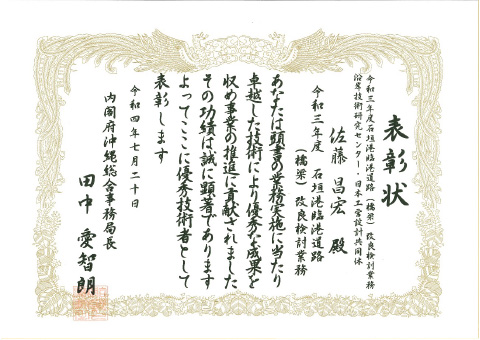 表彰状
令和三年度石垣港臨港道路（橋梁）改良検討業務
沿岸技術研究センター・日本工営設計共同体
佐藤 昌宏 殿
令和三年度 石垣港臨港道路
（橋梁）改良検討業務
あなたは頭書の業務実施に当たり
卓越した技術により優秀な成果を
収め事業の推進に貢献されました
その功績は誠に顕著であります
よってここに優秀技術者として
表彰します
令和四年七月二十日
内閣府沖縄総合事務局長
田中 愛智朗